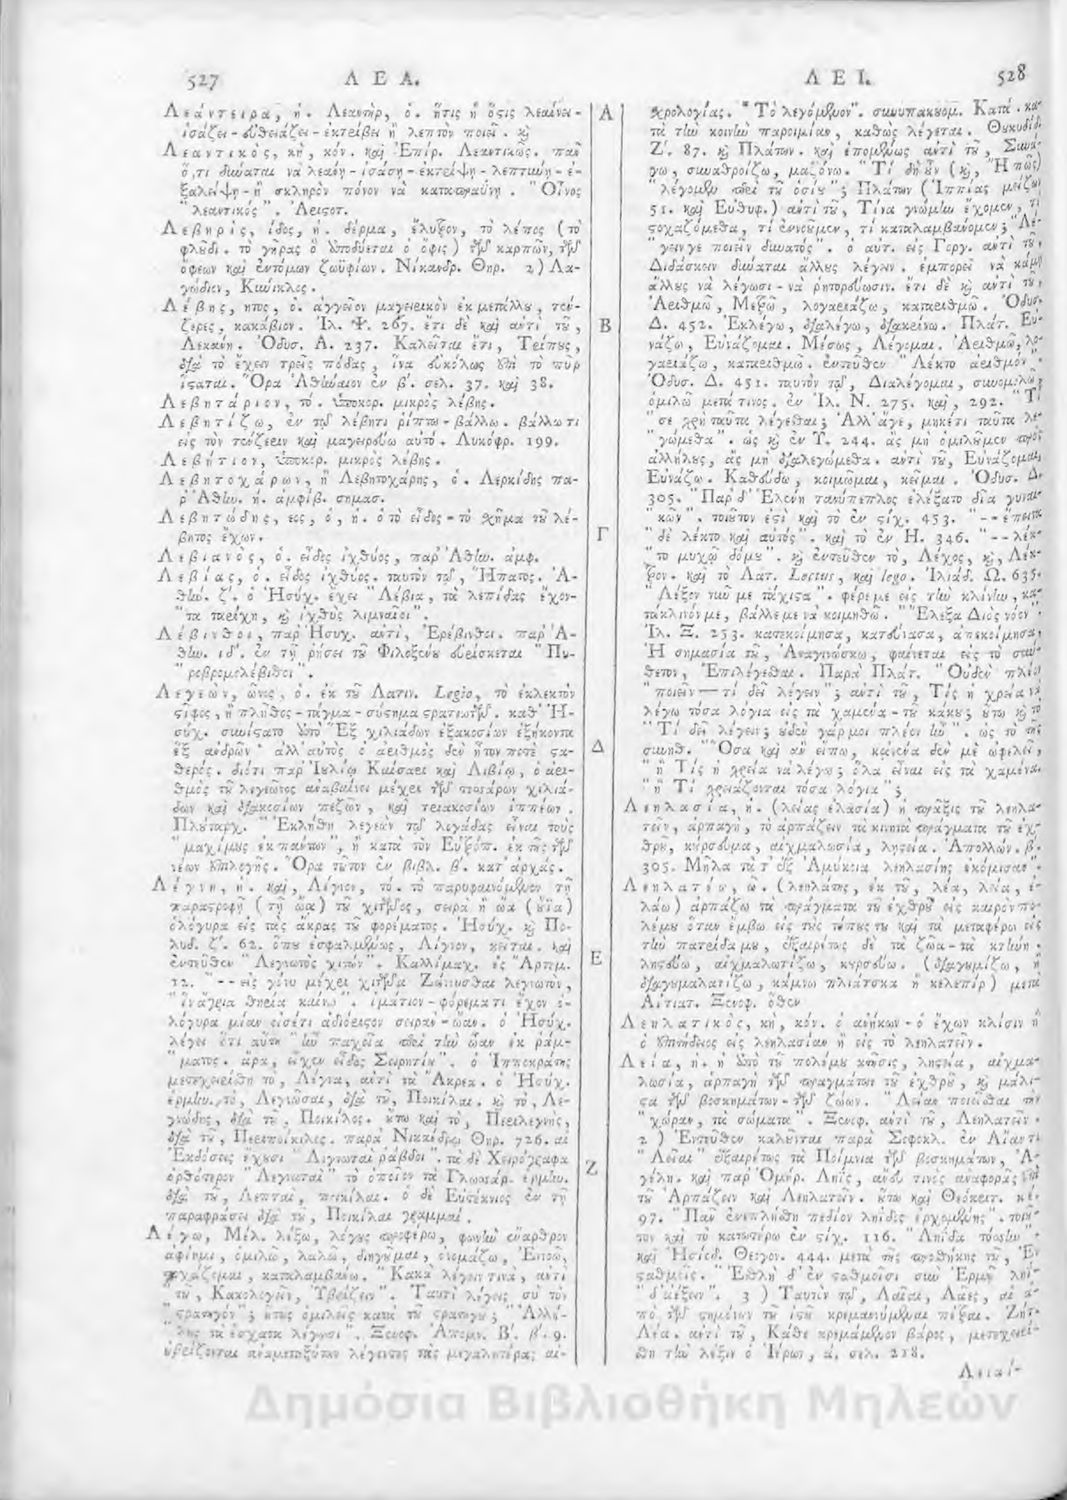 527 Λ Ε Α.
Λεάντειρα, ἡ. Λεαντὴρ, ὁ. ἥτις ἢ ὅςις λεαίνει-
ἰσάζει - εὐθειάζει - ἐκτρίβει ἢ λεπτὸν ποιεῖ. καὶ
Λεαντικὸς, κὴ, κόν. καὶ Ἐπίρ. Λεαντικῶς. πᾶν
ὅ,τι δύναται νὰ λεάνῃ - ἰσάσῃ - ἐκτρίψῃ - λεπτύνῃ - ἐ-
ξαλείψῃ - ἢ σκληρὸν πόνον νὰ καταπραΰνῃ. " Οἶνος
" λεαντικός ". Ἀριςοτ.
Λεβηρὶς, ίδος, ἡ. δέρμα, ἔλυτρον, τὸ λέπος (τὸ
φλύδι. τὸ γῆρας ὃ ὑποδύεται ὁ ὄφις) τῶν καρπῶν, τῶν
ὄφεων καὶ ἐντόμων ζωϋφίων. Νίκανδρ. Θηρ. 2) Λα-
γώδιον, Κώνικλος.
Λέβης, ητος, ὁ. ἀγγεῖον μαγειρικὸν ἐκ μετάλλου, τεύ-
ζερες, κακάβιον. Ἰλ. Ψ. 267. ἔτι δὲ καὶ ἀντὶ τοῦ,
Λεκάνη. Ὀδυσ. Α. 237. Καλεῖται ἔτι, Τρίπους,
διὰ τὸ ἔχειν τρεῖς πόδας, ἵνα εὐκόλως ἐπὶ τὸ πῦρ
ἵςαται. Ὅρα Ἀθήναιον ἐν β'. σελ. 37. καὶ 38.
Λεβητάριον, τό. Ὑποκορ. μικρὸς λέβης.
Λεβητίζω, ἐν τῷ λέβητι ῥίπτω - βάλλω. βάλλω τι
εἰς τὸν τεύζεριν καὶ μαγειρεύω αὐτό. Λυκόφρ. 199.
Λεβήτιον, Ὑποκορ. μικρὸς λέβης.
Λεβητοχάρων, ἢ Λεβητοχάρης, ὁ. Λερκίδης πα-
ρ' Ἀθην. ἡ. ἀμφίβ. σημασ.
Λεβητώδης, εος, ὁ, ἡ. ὁ τὸ εἶδος - τὸ σχῆμα τοῦ λέ-
βητος ἔχων.
Λεβιανὸς, ὁ. εἶδος ἰχθύος, παρ' Ἀθην. ἀμφ.
Λεβίας, ὁ. εἶδος ἰχθύος. ταυτὸν τῷ, Ἥπατος. Ἀ-
θην. ζ'. ὁ Ἡσύχ. ἔχει " Λέβια, τὰ λεπίδας ἔχον-
" τα ταρίχη, καὶ ἰχθῦς λιμναῖοι ".
Λέβινθοι, παρ' Ἡσυχ. ἀντὶ, Ἐρέβινθοι. παρ' Ἀ-
θην. ιδ'. ἐν τῇ ῥήσει τοῦ Φιλοξένου εὑρίσκεται " Πυ-
" ροβρομολέβιθοι ".
Λεγεὼν, ῶνος, ὁ. ἐκ τοῦ Λατιν. Legio, τὸ ἐκλεκτὸν
ςῖφος, ἢ πλῆθος - τάγμα - σύςημα ςρατιωτῶν. καθ' Ἡ-
σύχ. συνίςατο ὑπὸ Ἓξ χιλιάδων ἑξακοσίων ἑξήκοντα
ἓξ ἀνδρῶν· ἀλλ' αὐτὸς ὁ ἀριθμὸς δὲν ἦτον ποτὲ ςα-
θερός. διότι παρ' Ἰουλίῳ Καίσαρι καὶ Λιβίῳ, ὁ ἀρι-
θμὸς τοῦ λεγεῶνος ἀναβαίνει μέχρι τῶν τεσσάρων χιλιά-
δων καὶ διακοσίων πεζῶν, καὶ τριακοσίων ἱππέων.
Πλούταρχ. " Ἐκλήθη λεγεὼν τῷ λογάδας εἶναι τοὺς
" μαχίμους ἐκ πάντων ", ἢ κατὰ τὸν Εὐτρόπ. ἐκ τῆς τῶν
νέων ἐπιλογῆς. Ὅρα τοῦτον ἐν βιβλ. β'. κατ' ἀρχάς.
Λέγνη, ἡ. καὶ, Λέγνον, τό. τὸ παρυφαινόμενον τῇ
παραςροφῇ (τῇ ὤᾳ) τοῦ χιτῶνος, σειρὰ ἢ ὤα (οὔϊα)
ὁλόγυρα εἰς τὰς ἄκρας τοῦ φορέματος. Ἡσύχ. καὶ Πο-
λυδ. ζ'. 62. ὅπου ἐσφαλμένως, Λίγνον, κεῖται. καὶ
ἐντεῦθεν " Λεγνωτὸς χιτών ". Καλλίμαχ. ἐς Ἄρτεμ.
12. " -- εἰς γόνυ μέχρι χιτῶνα Ζώννυσθαι λεγνωτὸν,
" ἵν' ἄγρια θηρία καίνω ". ἱμάτιον - φόρεμα τι ἔχον ὁ-
λόγυρα μίαν εἰσέτι ἀδιόριςον σειρὰν - ὤαν. ὁ Ἡσύχ.
λέγει ὅτι αὕτη " ἦν παχεῖα περὶ τὴν ὤαν ἐκ ῥάμ-
" ματος. ἄρα, εἶχεν εἶδος Σειρητίου ". ὁ Ἱπποκράτης
μετεχειρίσθη τὸ, Λέγνα, ἀντὶ τὰ Ἄκρεα. ὁ Ἡσύχ.
ἑρμην. τὸ, Λεγνῶσαι, διὰ τοῦ, Ποικίλαι. καὶ τὸ, Λε-
γνώδης, διὰ τοῦ, Ποικίλος. οὕτω καὶ τὸ, Περιλεγνὴς,
διὰ τοῦ, Περιποίκιλος. παρὰ Νικάνδρῳ Θηρ. 726. αἱ
Ἐκδόσεις ἔχουσι " Λιγνωταὶ ῥάβδοι ". τὰ δὲ Χειρόγραφα
ὀρθότερον " Λεγνωταί " τὸ ὁποῖον τὰ Γλωσσάρ. ἑρμην.
διὰ τοῦ, Λεπταὶ, ποικίλαι. ὁ δὲ Εὐτέκνιος ἐν τῇ
παραφράσει διὰ τοῦ, Ποικίλαι γραμμαί.
Λέγω, Μέλ. λέξω, λόγους προφέρω, φωνὴν ἔναρθρον
ἀφίημι, ὁμιλῶ, λαλῶ, διηγοῦμαι, ὀνομάζω, Ἐννοῶ,
ςοχάζομαι, καταλαμβάνω. " Κακὰ λέγειν τινα, ἀντὶ
" τοῦ, Κακολογεῖν, Ὑβρίζειν ". Ταυτὶ λέγεις σὺ τὸν
" ςρατηγόν "; ἤτοι ὁμιλεῖς κατὰ τοῦ ςρατηγοῦ; " Ἀλλή-
" λους τὰ ἔσχατα λέγουσι ". Ξενοφ. Ἀπομν. Β'. β'. 9.
ὑβρίζονται ἀναμεταξύτων λέγοντες τὰς μεγαλητέρας αἰ-
Α
Β
Γ
Δ
Ε
Ζ
Λ Ε Ι. 528
σχρολογίας. " Τὸ λεγόμενον ". συνυπακουομ. Κατά. κα-
τὰ τὴν κοινὴν παροιμίαν, καθὼς λέγεται. Θουκυδίδ.
Ζ'. 87. καὶ Πλάτων. καὶ ἑπομένως ἀντὶ τοῦ, Συνά-
γω, συναθροίζω, μαζόνω. " Τί δὴ οὖν (καὶ, Ἢ πῶς)
" λέγομεν περὶ τοῦ ὁσίου "; Πλάτων (Ἱππίας μείζων
51. καὶ Εὐθυφ.) ἀντὶ τοῦ, Τίνα γνώμην ἔχομεν, τί
ςοχαζόμεθα, τί ἐννοοῦμεν, τί καταλαμβάνομεν; " Λέ-
" γειν γε ποιεῖν δυνατός ". ὁ αὐτ. εἰς Γοργ. ἀντὶ τοῦ,
Διδάσκειν δύναται ἄλλους λέγειν. ἐμπορεῖ νὰ κάμῃ
ἄλλους νὰ λέγωσι - νὰ ῥητορεύωσιν. ἔτι δὲ καὶ ἀντὶ τοῦ,
Ἀριθμῶ, Μετρῶ, λογαριάζω, καταριθμῶ. Ὀδυσ.
Δ. 452. Ἐκλέγω, διαλέγω, διακρίνω. Πλάτ. Εὐ-
νάζω, Εὐνάζομαι. Μέσως, Λέγομαι. Ἀριθμῶ, λο-
γαριάζω, καταριθμῶ. ἐντεῦθεν " Λέκτο ἀριθμόν ".
Ὀδυσ. Δ. 451. ταυτὸν τῷ, Διαλέγομαι, συνομιλῶ,
ὁμιλῶ μετά τινος. ἐν Ἰλ. Ν. 275. καὶ, 292. " Τί
" σε χρὴ ταῦτα λέγεσθαι; Ἀλλ' ἄγε, μηκέτι ταῦτα λε-
" γώμεθα ". ὡς καὶ ἐν Υ. 244. ἂς μὴ ὁμιλοῦμεν πρὸς
ἀλλήλους, ἂς μὴ διαλεγώμεθα. ἀντὶ τοῦ, Εὐνάζομαι,
Εὐνάζω. Καθεύδω, κοιμῶμαι, κεῖμαι. Ὀδυσ. Δ.
305. " Παρ δ' Ἑλένη τανύπεπλος ἐλέξατο δῖα γυναι-
" κῶν ". τοιοῦτον ἐςὶ καὶ τὸ ἐν ςίχ. 453. " -- ἔπειτα
" δὲ λέκτο καὶ αὐτός ". καὶ τὸ ἐν Η. 346. " -- λέκ-
" το μυχῷ δόμου ". καὶ ἐντεῦθεν τὸ, Λέχος, καὶ, Λέκ-
τρον. καὶ τὸ Λατ. Lectus, καὶ lego. Ἰλιάδ. Ω. 635.
" Λέξον νῦν με τάχιςα ". φέρε με εἰς τὴν κλίνην, κα-
τακλινόν με, βάλλε με νὰ κοιμηθῶ. " Ἔλεξα Διὸς νόον ".
Ἰλ. Ξ. 253. κατεκοίμησα, κατεύνασα, ἀπεκοίμησα,
Ἡ σημασία τοῦ, Ἀναγινώσκω, φαίνεται εἰς τὸ σύν-
θετον, Ἐπιλέγεσθαι. Παρὰ Πλάτ. " Οὐδὲν πλέον
" ποιεῖν — τί δεῖ λέγειν "; ἀντὶ τοῦ, Τίς ἡ χρεία νὰ
λέγω τόσα λόγια εἰς τὰ χαμένα - τοῦ κάκου; οὕτω καὶ τὸ
" Τί δεῖ λέγειν; οὐδὲν γάρ μοι πλέον ἦν ". ὡς τὸ τῆς
συνηθ. " Ὅσα καὶ ἂν εἴπω, κᾀνένα δὲν μὲ ὠφελεῖ,
" ἢ Τίς ἡ χρεία νὰ λέγω; ὅλα εἶναι εἰς τὰ χαμένα.
" ἢ Τί χρειάζονται τόσα λόγια ";
Λεηλασία, ἡ. (λείας ἐλασία) ἡ πρᾶξις τοῦ λεηλα-
τεῖν, ἁρπαγὴ, τὸ ἁρπάζειν τὰ κινητὰ πράγματα τοῦ ἐχ-
θροῦ, κούρσευμα, αἰχμαλωσία, λῃςεία. Ἀπολλων. β'.
305. Μῆλα τά τ' ἐξ Ἀμύκοιο λεηλασίης ἐκόμισαν ".
Λεηλατέω, ῶ. (λεηλάτης, ἐκ τοῦ, λέα, λεία, ἐ-
λάω) ἁρπάζω τὰ πράγματα τοῦ ἐχθροῦ εἰς καιρὸν πο-
λέμου ὅταν ἔμβω εἰς τοὺς τόπους του καὶ τὰ μεταφέρω εἰς
τὴν πατρίδα μου, ἐξαιρέτως δὲ τὰ ζῶα - τὰ κτήνη.
λῃςεύω, αἰχμαλωτίζω, κουρσεύω. (διαγουμίζω, ἢ
διαγουμαλατίζω, κάμνω πλιάτσκα ἢ κελεπὶρ) μετὰ
Αἰτιατ. Ξενοφ. ὅθεν
Λεηλατικὸς, κὴ, κόν. ὁ ἀνήκων - ὁ ἔχων κλίσιν ἢ
ὁ ἐπιτήδειος εἰς λεηλασίαν ἢ εἰς τὸ λεηλατεῖν.
Λεία, ἡ. ἡ ὑπὸ τοῦ πολέμου κτῆσις, λῃςεία, αἰχμα-
λωσία, ἁρπαγὴ τῶν πραγμάτων τοῦ ἐχθροῦ, καὶ μάλι-
ςα τῶν βοσκημάτων - τῶν ζώων. " Λείαν ποιεῖσθαι τὴν
" χώραν, τὰ σώματα ". Ξενοφ. ἀντὶ τοῦ, Λεηλατεῖν.
2) Ἐντεῦθεν καλοῦνται παρὰ Σοφοκλ. ἐν Αἴαντι
" Λεῖαι " ἐξαιρέτως τὰ Ποίμνια τῶν βοσκημάτων, Ἀ-
γέλη. καὶ παρ' Ὁμήρ. Ληῒς, ἄνευ τινὸς ἀναφορᾶς ἐπὶ
τοῦ Ἁρπάζειν καὶ Λεηλατεῖν. οὕτω καὶ Θεόκριτ. κέ.
97. " Πᾶν ἐνεπλήσθη πεδίον ληΐδος ἐρχομένης ". τοιοῦ-
τον καὶ τὸ κατωτέρω ἐν ςίχ. 116. " Ληΐδα τόσσην "
καὶ Ἡσίοδ. Θεογον. 444. μετὰ τῆς προσθήκης τοῦ, Ἐν
ςαθμοῖς. " Ἐσθλὴ δ' ἐν ςαθμοῖσι σὺν Ἑρμῇ ληΐ-
" δ' ἀέξειν ". 3) Ταυτὸν τῷ, Λαῖαι, Λαὲς, αἱ ἀ-
πὸ τῶν ςημόνων τοῦ ἱςοῦ κρεμαννύμεναι πέτραι. Ζήτ.
Λέα. ἀντὶ τοῦ, Κάθε κρεμάμενον βάρος, μετεχειρί-
σθη τὴν λέξιν ὁ Ἥρων, ἀ. σελ. 218.
Λειαί-
Δημόσια Βιβλιοθήκη Μηλεών